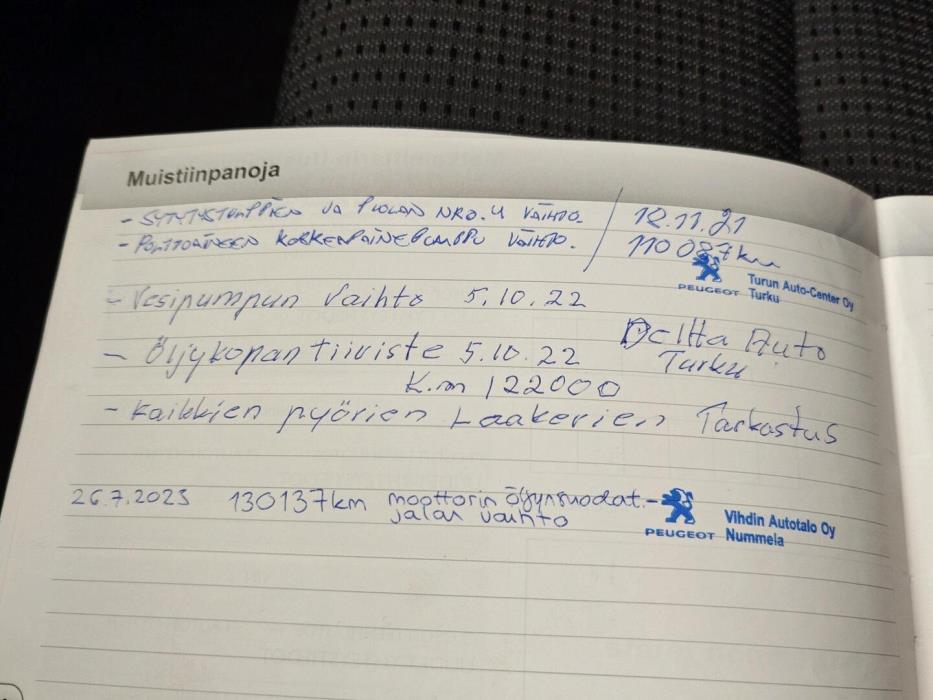 Muistiinpanoja
- SYTYTYSTULPPIEN JA PUOLAN NRO.4 VAIHTO. 12.11.21
- POLTTOAINEEN KORKEAPAINEPUMPPU VAIHTO. 110 087km
PEUGEOT Turun Auto-Center Oy
Turku
- Vesipumpun Vaihto 5.10.22
- Öljykopantiiviste 5.10.22 Delta Auto
Turku
K.m 122000
- Kaikkien pyörien Laakerien Tarkastus
26.7.2023 130137km moottorin öljynsuodat.-
jalan vaihto
PEUGEOT Vihdin Autotalo Oy
Nummela